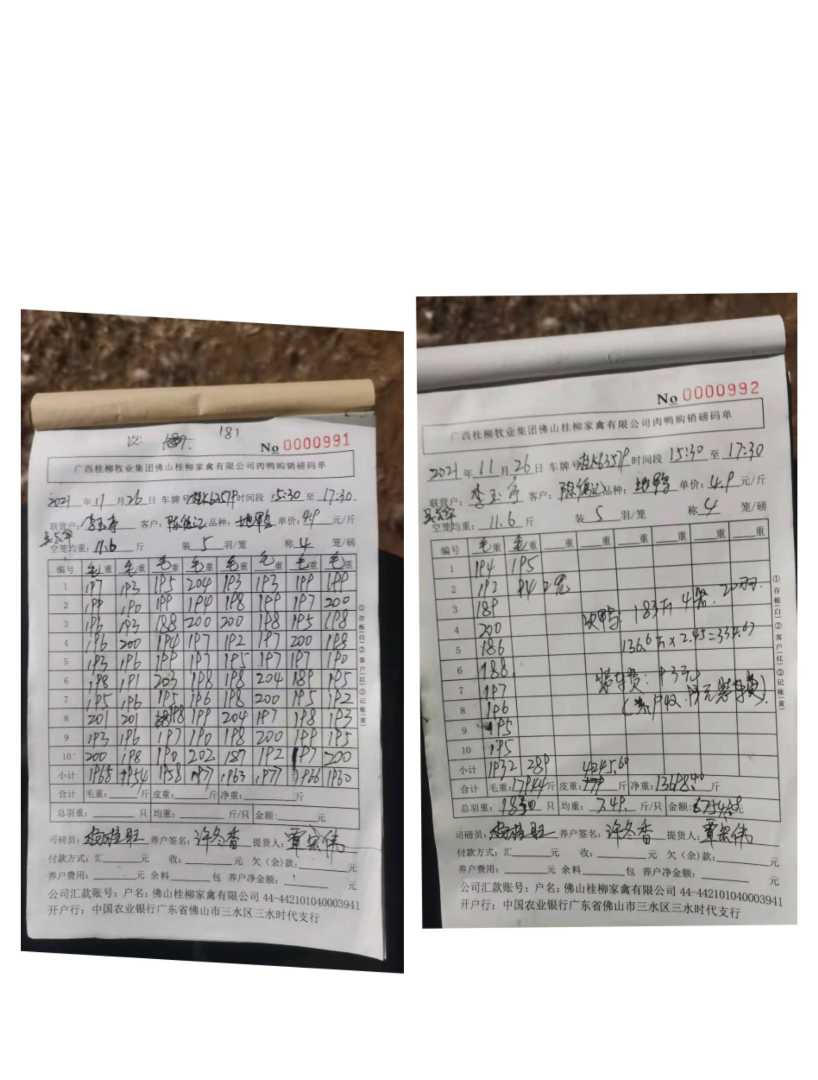 181
No 0000991
广西桂柳牧业集团佛山桂柳家禽有限公司肉鸭购销磅码单
2021 年 11 月 26 日 车牌号 时间段 15:30 至 17:30
联营户: 李玉 客户: 品种: 地鸭 单价: 4.9 元/斤
空笼均重: 11.6 斤 装 5 羽/笼 称 4 笼/磅
编号 毛重 毛重 毛重 毛重 毛重 毛重 毛重 毛重
1 197 193 195 204 193 193 199 199
2 199 190 199 190 198 199 197 200
3 196 193 188 200 200 198 195 198
4 196 200 190 197 192 197 200 198
5 193 196 199 197 195 197 197 190
6 198 191 203 198 198 204 189 195
7 195 196 195 196 198 200 195 192
8 201 201 198 199 204 197 198 193
9 193 196 197 190 198 200 199 195
10 200 198 190 202 187 192 197 200
小计 1968 1954 1958 1971 1963 1977 1966 1960
合计 毛重: 斤 皮重: 斤 净重: 斤
总羽重: 只 均重: 斤/只 金额: 元
司磅员: 养户签名: 许冬香 提货人: 覃 伟
付款方式: 汇 元 收: 元 欠(余)款: 元
养户费用: 元 余料 包 养户净金额: 元
公司汇款账号: 户名: 佛山桂柳家禽有限公司 44-442101040003941
开户行: 中国农业银行广东省佛山市三水区三水时代支行
①存根(白)②客户(红)③记账(黄)
No 0000992
广西桂柳牧业集团佛山桂柳家禽有限公司肉鸭购销磅码单
2021 年 11 月 26 日 车牌号 时间段 15:30 至 17:30
联营户: 李玉 客户: 品种: 地鸭 单价: 4.9 元/斤
空笼均重: 11.6 斤 装 5 羽/笼 称 4 笼/磅
编号 毛重 毛重 重 重 重 重 重 重
1 194 195
2 192 94 2笼
3 189 183斤 4笼
4 200
5 186 136.6斤×2.45=334.67
6 188
7 197
8 196
9 195
10 195
小计 1932 289 4245.60
合计 毛重: 17944 斤 皮重: 斤 净重: 13698.40 斤
总羽重: 1830 只 均重: 7.49 斤/只 金额: 元
司磅员: 养户签名: 许冬香 提货人: 覃 伟
付款方式: 汇 元 收: 元 欠(余)款: 元
养户费用: 元 余料 包 养户净金额: 元
公司汇款账号: 户名: 佛山桂柳家禽有限公司 44-442101040003941
开户行: 中国农业银行广东省佛山市三水区三水时代支行
①存根(白)②客户(红)③记账(黄)